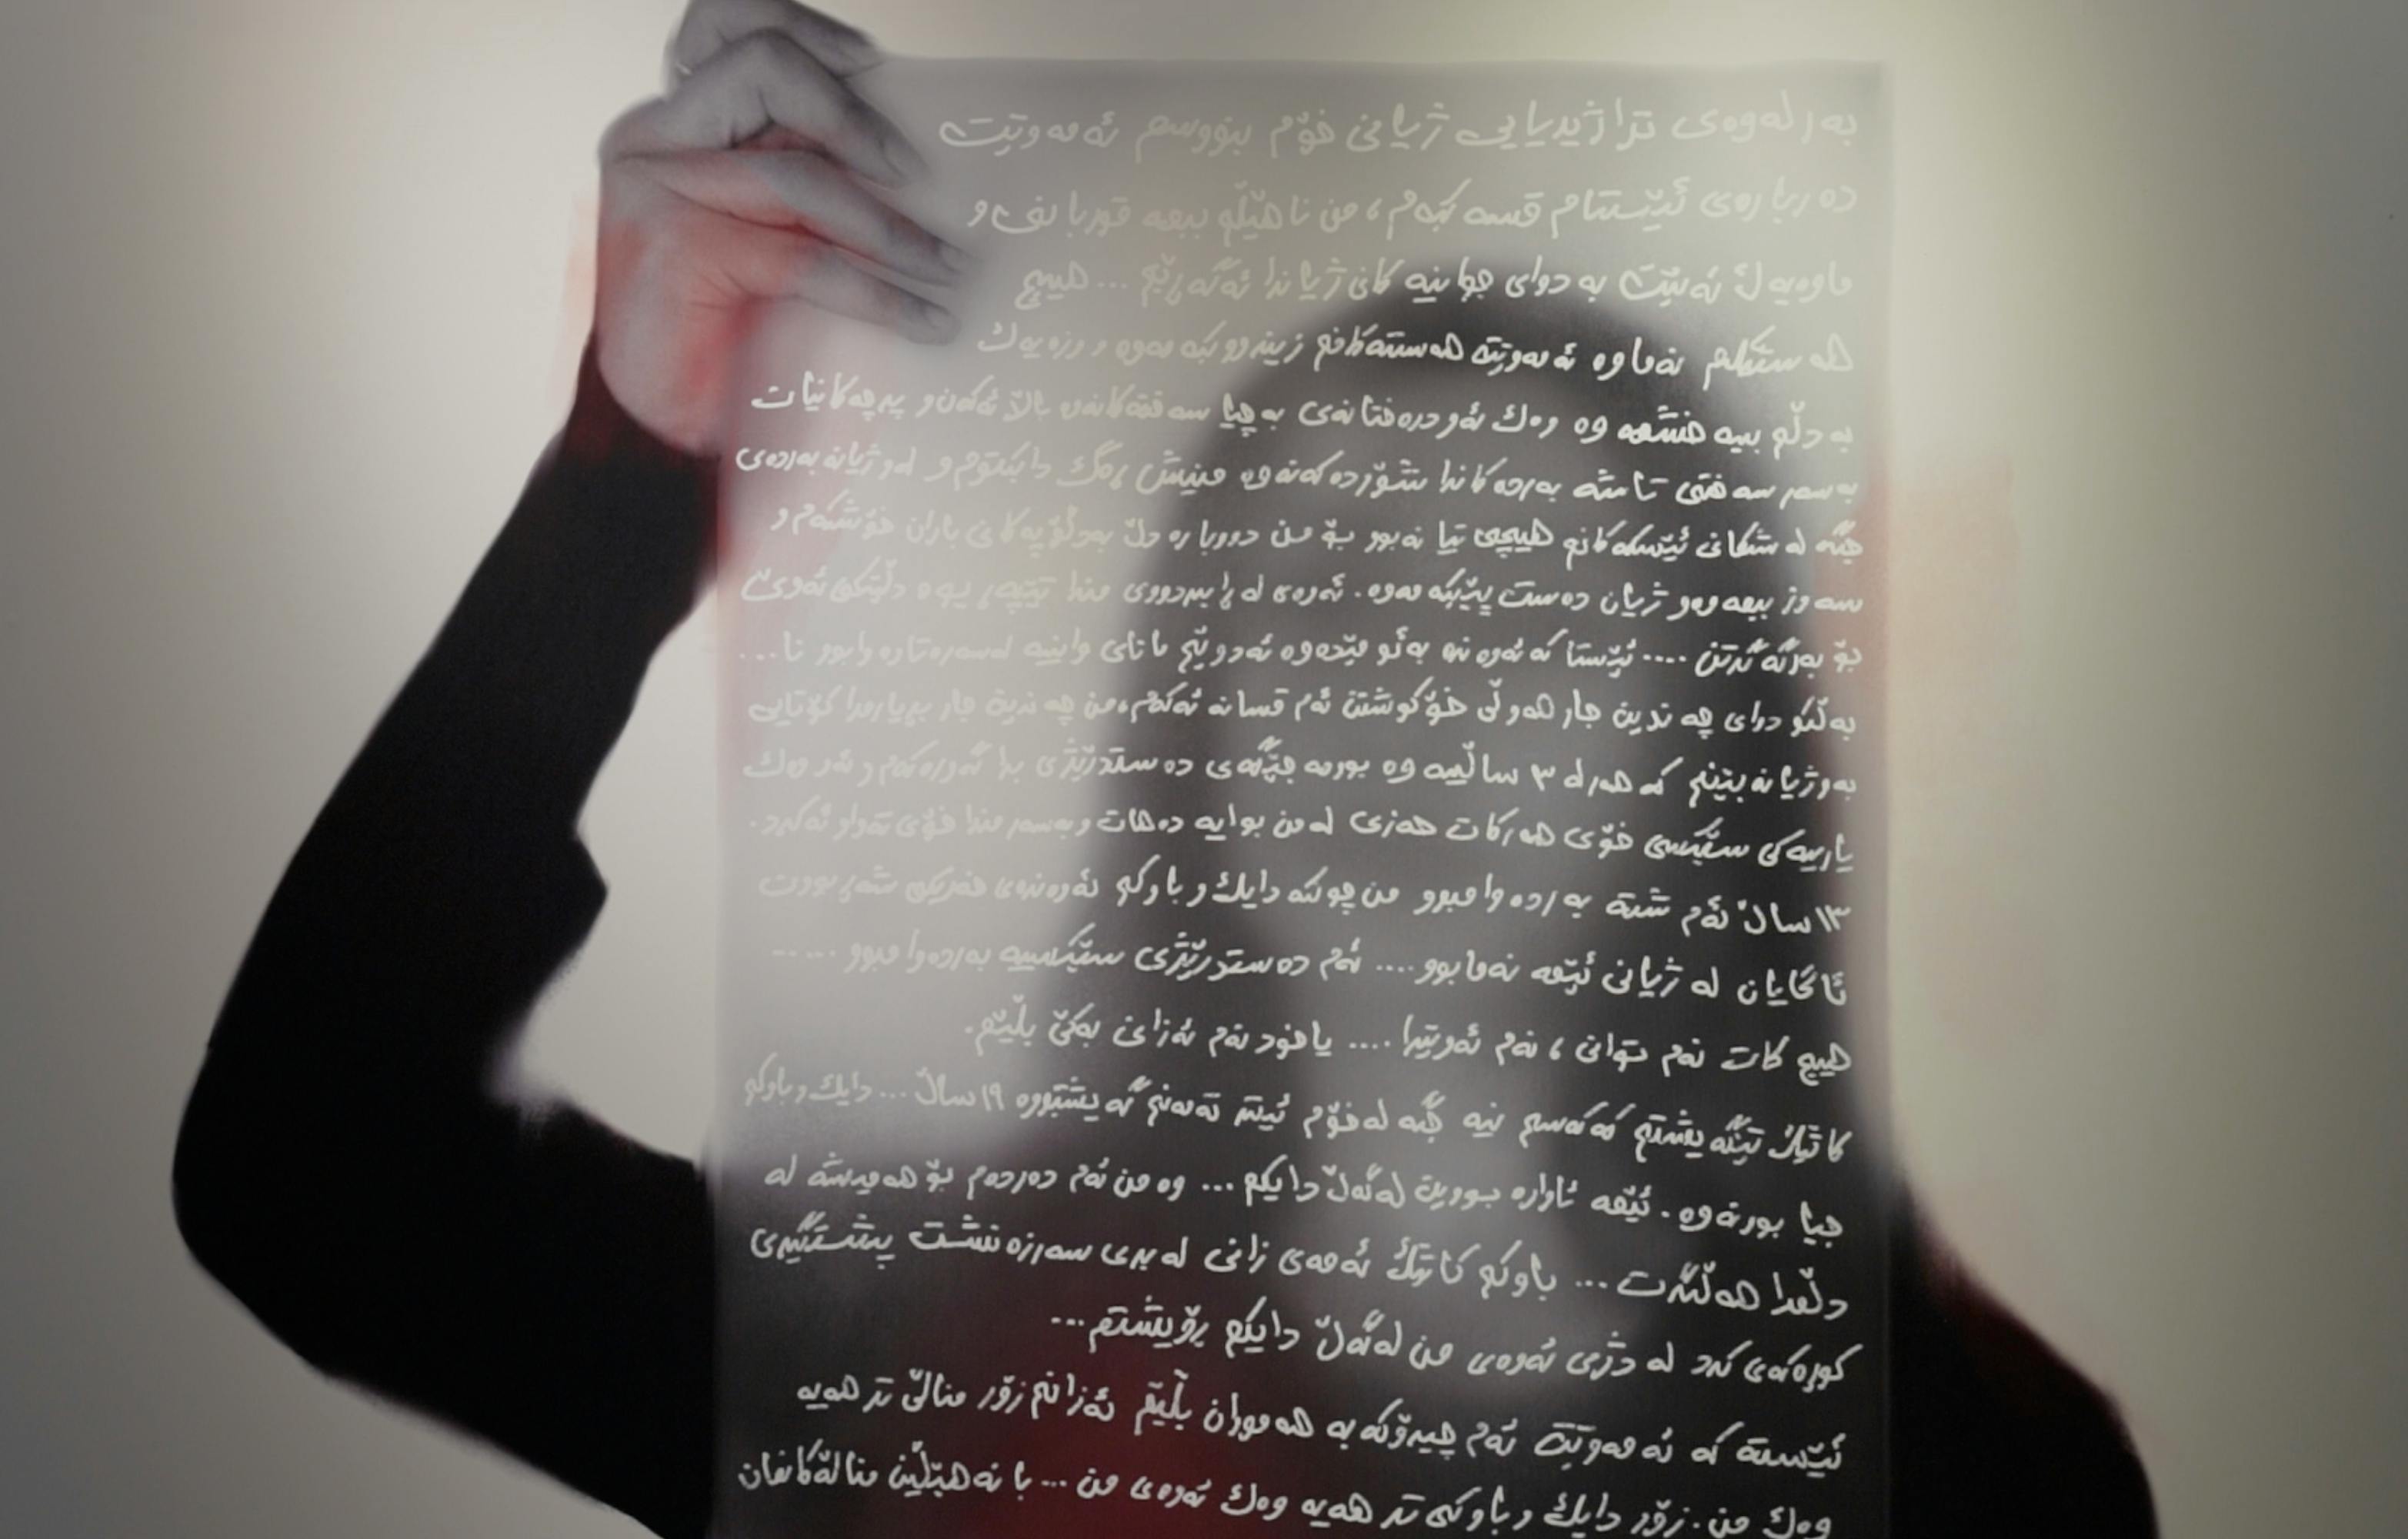 بەر لەوەی تراژیدیایی ژیانی خۆم بنووسم ئەمەوێت
دەربارەی ئێستام قسە بکەم، من ناهێڵم ببمە قوربانی و
ماوەیەك ئەبێت بە دوای جوانیەکانی ژیاندا ئەگەڕێم ... هیچ
هەستێکم نەماوە ئەمەوێتە هەستەکانم زیندوو بکەمەوە و وزەیەك
بە دڵم ببە وە وەك ئەو درەختانەی بە چیا سەختەکانەوە باڵا ئەکەن و پەرچەکانیات
بەسەر سەختی تاشە بەردەکاندا شۆڕدەکەنەوە منیش ڕەگ دابکوتم و لەو ژیانە بەردەی
جگە لە شکانی ئێسکەکانم هیچی تیا نەبوو بۆ من دووبارە دڵ بەدڵۆپەکانی باران خۆشکەم و
سەوز ببمەوەو ژیان دەست پێبکەمەوە. ئەوەی لە ڕابردووی مندا تێپەڕیوە دڵێکی ئەوێ
بۆ بەرگەگرتن .... ئێستا کە ئەوەندە بەئومێدەوە ئەدوێم مانای وانیە لەسەرەتاوە وابوو نا...
بەڵکو دوای چەندین جار هەوڵی خۆکوشتن ئەم قسانە ئەکەم، من چەندین جار بڕیارمدا کۆتایی
بەو ژیانە بێنم کە هەر لە ٣ ساڵییە وە بوومە جێگەی دەستدرێژی برا گەورەکەم و ئەو وەك
یارییەکی سێکسی خۆی هەرکات حەزی لە من بوایە دەهات و بەسەر مندا خۆی تەواو ئەکرد.
١٣ ساڵ ئەم شتە بەردەوامبوو من چونکە دایك و باوکم ئەوەندەی خەریکی شەڕ بوون
ئاگایان لە ژیانی ئێمە نەمابوو.... ئەم دەستدرێژی سێکسییە بەردەوامبوو .....
هیچ کات نەم توانی، نەم ئەوێرا .... یاخود نەم ئەزانی بەکێ بڵێم.
کاتێك تێگەیشتم کە کەسم نیە جگە لە خۆم ئیتر تەمەنم گەیشتبووە ١٩ ساڵ... دایك و باوکم
جیا بوونەوە. ئێمە ئاوارە بووین لەگەڵ دایکم... وە من ئەم دەردەم بۆ هەمیشە لە
دڵمدا هەڵگرت ... باوکم کاتێك ئەمەی زانی لەبری سەرزەنشت پشتگیری
کوڕەکەی کرد لە دژی ئەوەی من لەگەڵ دایکم ڕۆیشتم...
ئێستە کە ئەمەوێت ئەم چیرۆکە بە هەمووان بڵێم ئەزانم زۆر مناڵی تر هەیە
وەك من. زۆر دایك و باوکی تر هەیە وەك ئەوەی من ... با نەهێڵین مناڵەکانمان